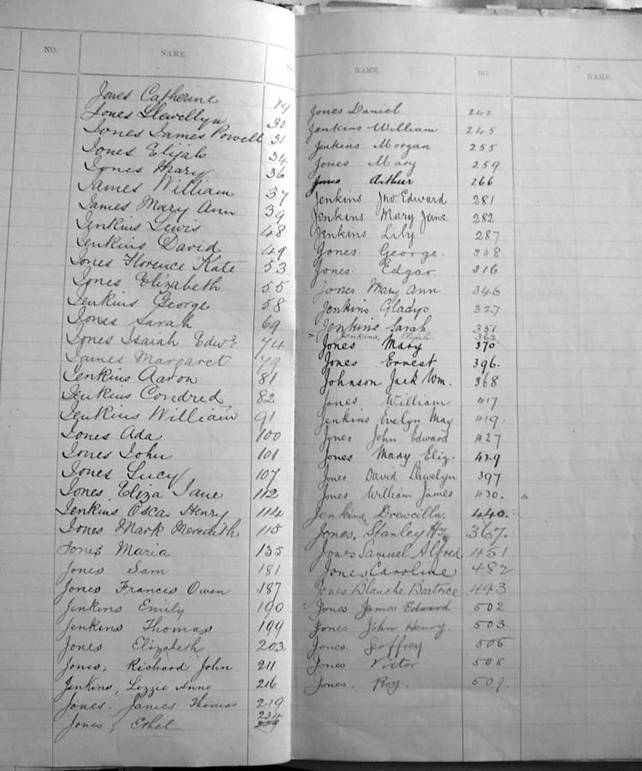 NO. NAME.
Jones Catherine 19
Jones Llewellyn 30
Jones James Powell 31
Jones Elijah 34
Jones Mary 36
James William 37
James Mary Ann 39
Jenkins Lewis 48
Jenkins David 49
Jones Florence Kate 53
Jones Elizabeth 55
Jenkins George 58
Jones Sarah 69
Jones Isaiah Edwd 74
James Margaret 79
Jenkins Aaron 81
Jenkins Condred 82
Jenkins William 91
Jones Ada 100
Jones John 101
Jones Lucy 107
Jones Eliza Jane 112
Jenkins Oscar Henry 114
Jones Mark Meredith 115
Jones Maria 135
Jones Sam 181
Jones Frances Owen 187
Jenkins Emily 190
Jenkins Thomas 199
Jones Elizabeth 203
Jones, Richard John 211
Jenkins, Lizzie Anne 216
Jones. James Thomas 219
Jones, Ethel 234
NAME. NO. NAME.
Jones Daniel
Jenkins William 245
Jenkins Morgan 255
Jones Mary 259
Jones Arthur 266
Jenkins Jno Edward 281
Jenkins Mary Jane 282
Jenkins Lily 287
Jones George
Jones Edgar 316
Jones Mary Ann 346
Jenkins Gladys 327
Jenkins Sarah 351
Jenkins Elijah 362
Jones Mary 370
Jones Ernest 396
Johnson Jack Wm. 368
Jones William 417
Jenkins Evelyn May 419
Jones John Edward 427
Jones Mary Eliz. 429
Jones David Llewelyn 397
Jones William James 430
Jenkins Drewcilla 440
Jones, Stanley Hy 367
Jones Samuel Alfred 451
Jones Caroline 482
Jones Blanche Beatrice 443
Jones James Edward 502
Jones John Henry 503
Jones Joffrey 505
Jones Victor 508
Jones. Roy. 509